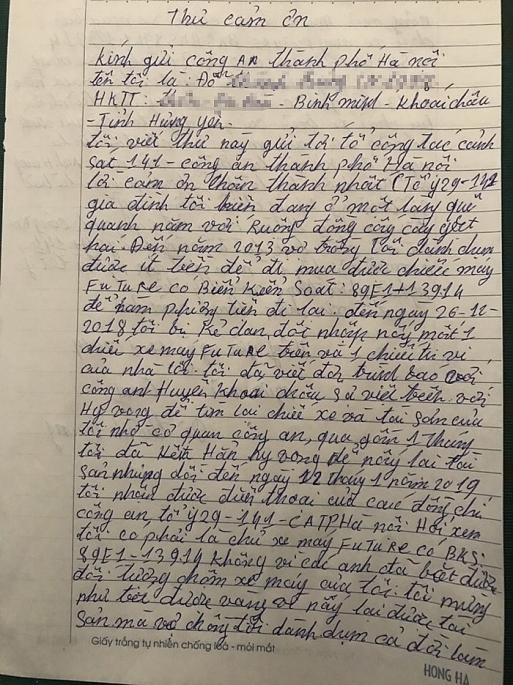 Thư cảm ơn
kính gửi công AN thành phố Hà nội
tên tôi là: Đỗ
HKTT: - Bình minh - Khoái châu
- Tỉnh Hưng yên.
tôi viết thư này gửi tới tổ công tác cảnh
sát 141 - công an thành phố Hà nội
lời cảm ơn chân thành nhất (Tổ Y29-141
gia đình tôi hiện đang ở một làng quê
quanh năm với Ruộng đồng công cấy gặt
hái. Đến năm 2013 vợ chồng tôi dành dụm
được ít tiền để đi mua được chiếc máy
FuTuRe có Biển Kiển Soát: 89E1+13914
để làm phương tiện đi lại. đến ngày 26-11-
2018 tôi bị Kẻ dan, đột nhập lấy mất 1
chiếc xe máy FuTuRE trên và 1 chiếc ti vi
của nhà tôi tôi đã viết đơn trình báo với
công anh Huyện Khoái châu sự việc trên với
Hy vọng để tìm lại chiếc xe và tài sản của
tôi nhờ cơ quan công an, qua gồm 1 tháng
tôi đã Hết Hẳn hy vọng để nấy lại tài
sản nhưng đối đến ngày 12 tháng 1 năm 2019
tôi nhận được điện thoại của các đồng chí
công an, tổ Y29-141-CATP Hà nội Hỏi xem
tôi có phải là chủ xe máy FuTuRe có BKS:
89E1-13914 không vì các anh đã bắt được
đối tượng chộm xe máy của tôi. tôi mừng
như bắt được vàng vì nấy lại được tài
sản mà vợ chồng tôi dành dụm cả đời làm
Giấy trắng tự nhiên chống lóa - mỏi mắt
HONG HA